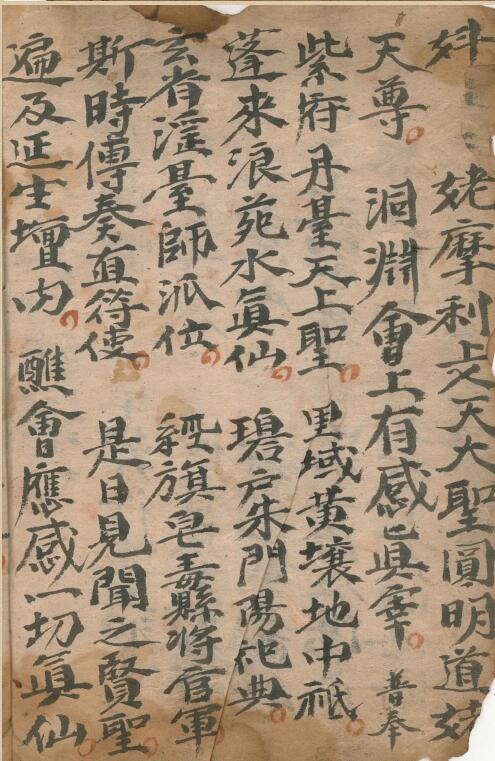 姥摩利上天大聖圓明道姥
天尊。洞淵會上有感真宰。普奉
紫府丹臺天上聖。里域黃壤地中祇。
蓬來浪苑水真仙。碧戶朱門陽祀典。
玄省瑤臺師派位。經旗皂纛縣將官軍。
斯時傳奏直符使。是日見聞之賢聖。
遍及延生壇內。醮會應感一切真仙。